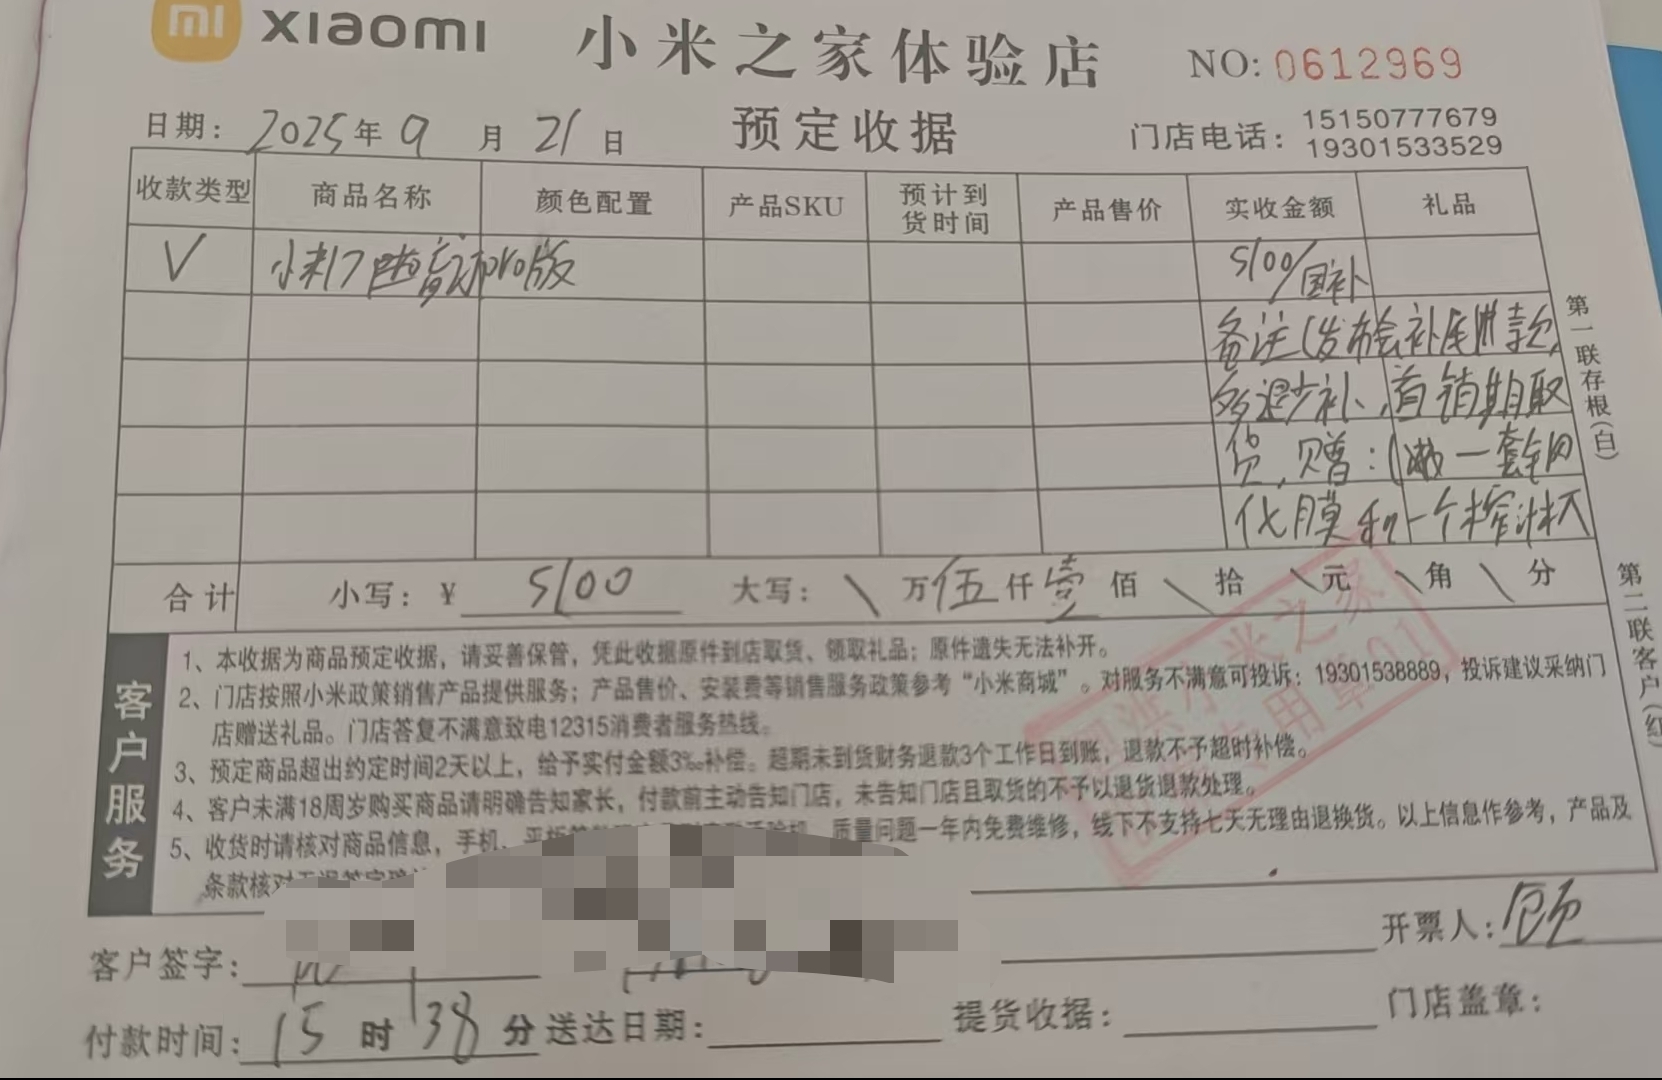 xiaomi 小米之家体验店 NO: 0612969
日期: 2025年9月21日 预定收据 门店电话: 15150777679
19301533529
收款类型 商品名称 颜色配置 产品SKU 预计到货时间 产品售价 实收金额 礼品
√ 小米17 pro版 5100/国补
备注(发布会补尾款,
多退少补、首销期取
货,赠:一套钢
化膜和一个榨汁杯
合计 小写: ¥ 5100 大写: \ 万伍仟壹佰 \ 拾 \ 元 \ 角 \ 分
第一联存根(白)
第二联客户(红)
客户服务
1、本收据为商品预定收据,请妥善保管,凭此收据原件到店取货、领取礼品;原件遗失无法补开。
2、门店按照小米政策销售产品提供服务;产品售价、安装费等销售服务政策参考“小米商城”。对服务不满意可投诉:19301538889,投诉建议采纳门
店赠送礼品。门店答复不满意致电12315消费者服务热线。
3、预定商品超出约定时间2天以上,给予实付金额3‰补偿。超期未到货财务退款3个工作日到账,退款不予超时补偿。
4、客户未满18周岁购买商品请明确告知家长,付款前主动告知门店,未告知门店且取货的不予以退货退款处理。
5、收货时请核对商品信息,手机、质量问题一年内免费维修,线下不支持七天无理由退换货。以上信息作参考,产品及
条款核对
小米之家
用章01
客户签字: 开票人: 顾
付款时间: 15时38分 送达日期: 提货收据: 门店盖章: